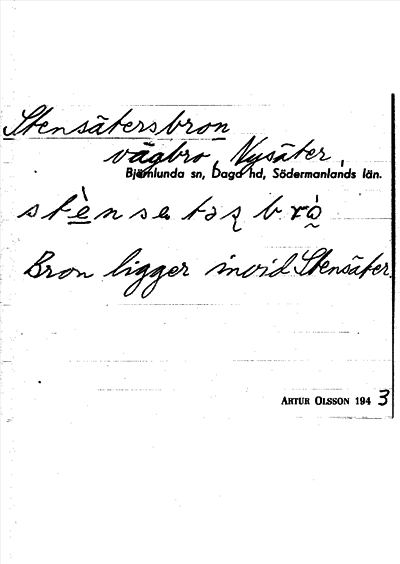 Stensätersbron
vägbro, Nysäter,
Björnlunda sn, Daga hd, Södermanlands län.
Bron ligger invid Stensäter.
ARTUR OLSSON 1943